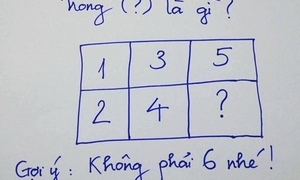 trong (?) là gì?
1 3 5
2 4 ?
Gợi ý: Không phải 6 nhé!